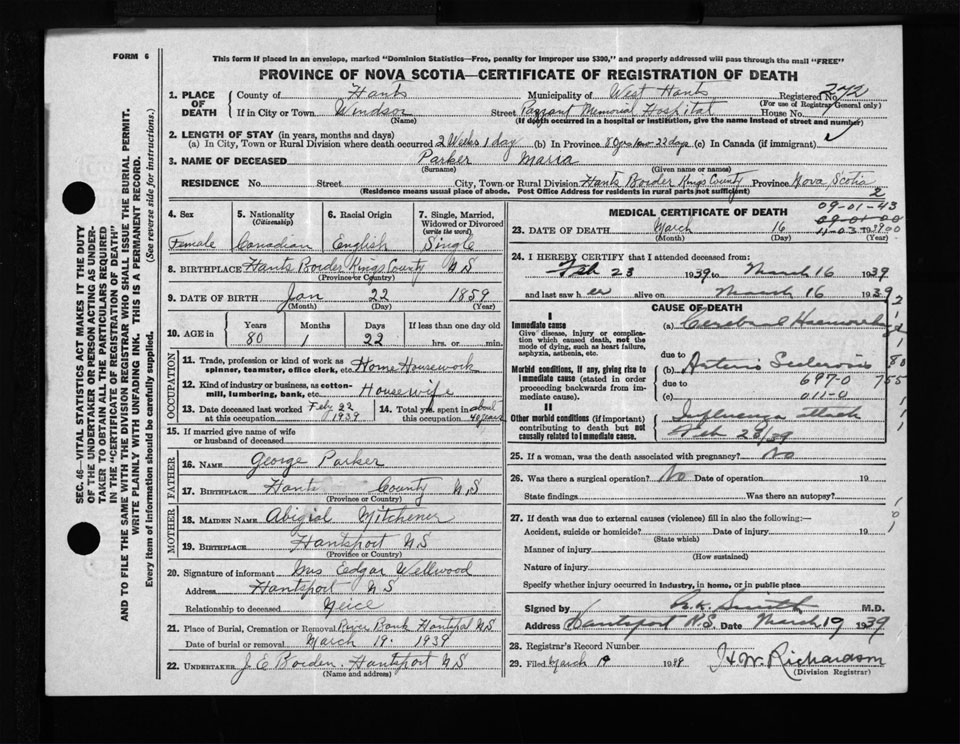 FORM 6
This form if placed in an envelope, marked "Dominion Statistics—Free, penalty for improper use $300," and properly addressed will pass through the mail "FREE"
PROVINCE OF NOVA SCOTIA—CERTIFICATE OF REGISTRATION OF DEATH
SEC. 46—VITAL STATISTICS ACT MAKES IT THE DUTY
OF THE UNDERTAKER OR PERSON ACTING AS UNDER-
TAKER TO OBTAIN ALL THE PARTICULARS REQUIRED
IN THE "CERTIFICATE OF REGISTRATION OF DEATH"
AND TO FILE THE SAME WITH THE DIVISION REGISTRAR WHO SHALL ISSUE THE BURIAL PERMIT.
WRITE PLAINLY WITH UNFADING INK. THIS IS A PERMANENT RECORD.
Every item of information should be carefully supplied. (See reverse side for instructions.)
1. PLACE OF DEATH County of Hants Municipality of West Hants Registered No. 272
(For use of Registrar General only)
If in City or Town Windsor Street Payzant Memorial Hospital House No.
(Name) (If death occurred in a hospital or institution, give the name instead of street and number)
2. LENGTH OF STAY (in years, months and days)
(a) In City, Town or Rural Division where death occurred 2 Weeks 1 day (b) In Province 80 yrs 1 mo 22 days (c) In Canada (if immigrant)
3. NAME OF DECEASED Parker Maria
(Surname) (Given name or names)
RESIDENCE No. Street City, Town or Rural Division Hants Border Kings County Province Nova Scotia
(Residence means usual place of abode. Post Office Address for residents in rural parts not sufficient) 2
4. Sex 5. Nationality 6. Racial Origin 7. Single, Married,
(Citizenship) Widowed or Divorced
(write the word)
Female Canadian English Single
8. BIRTHPLACE Hants Border Kings County N S
(Province or Country)
9. DATE OF BIRTH Jan 22 1859
(Month) (Day) (Year)
10. AGE in Years Months Days If less than one day old
80 1 22 hrs. or min.
OCCUPATION
11. Trade, profession or kind of work as
spinner, teamster, office clerk, etc. Home Housework
12. Kind of industry or business, as cotton-
mill, lumbering, bank, etc. Housewife
13. Date deceased last worked at this occupation Feby 22 1939 14. Total yrs. spent in this occupation about 40 years
15. If married give name of wife
or husband of deceased
FATHER
16. NAME George Parker
17. BIRTHPLACE Hants County N S
(Province or Country)
MOTHER
18. MAIDEN NAME Abigial Mitchener
19. BIRTHPLACE Hantsport N.S
(Province or Country)
20. Signature of informant Mrs Edgar Wellwood
Address Hantsport N S
Relationship to deceased Neice
21. Place of Burial, Cremation or Removal River Bank Hantsport N.S
Date of burial or removal March 19 1939
22. UNDERTAKER J. E Borden. Hantsport N S
(Name and address)
MEDICAL CERTIFICATE OF DEATH 09-01-43
09-01-00
11-03-00
23. DATE OF DEATH March 16
(Month) (Day) (Year)
24. I HEREBY CERTIFY that I attended deceased from:
Feb 23 1939 to March 16 1939
and last saw h er alive on March 16 1939
CAUSE OF DEATH
I
Immediate cause (a) Cerebral Haemorrhage
Give disease, injury or complica-
tion which caused death, not the
mode of dying, such as heart failure,
asphyxia, asthenia, etc. due to
Morbid conditions, if any, giving rise to (b) Arterio Sclerosis
immediate cause (stated in order due to 697-0 755
proceeding backwards from im-
mediate cause). (c) 011-0
II
Other morbid conditions (if important) Influenza
contributing to death but not Feb 28/39
causally related to immediate cause.
25. If a woman, was the death associated with pregnancy? No
26. Was there a surgical operation? No Date of operation 19
State findings Was there an autopsy?
27. If death was due to external causes (violence) fill in also the following:—
Accident, suicide or homicide? Date of injury 19
(State which)
Manner of injury
(How sustained)
Nature of injury
Specify whether injury occurred in industry, in home, or in public place
Signed by R. K. Smith M.D.
Address Hantsport N.S. Date March 19 1939
28. Registrar's Record Number
29. Filed March 19 1939 H W. Richardson
(Division Registrar)